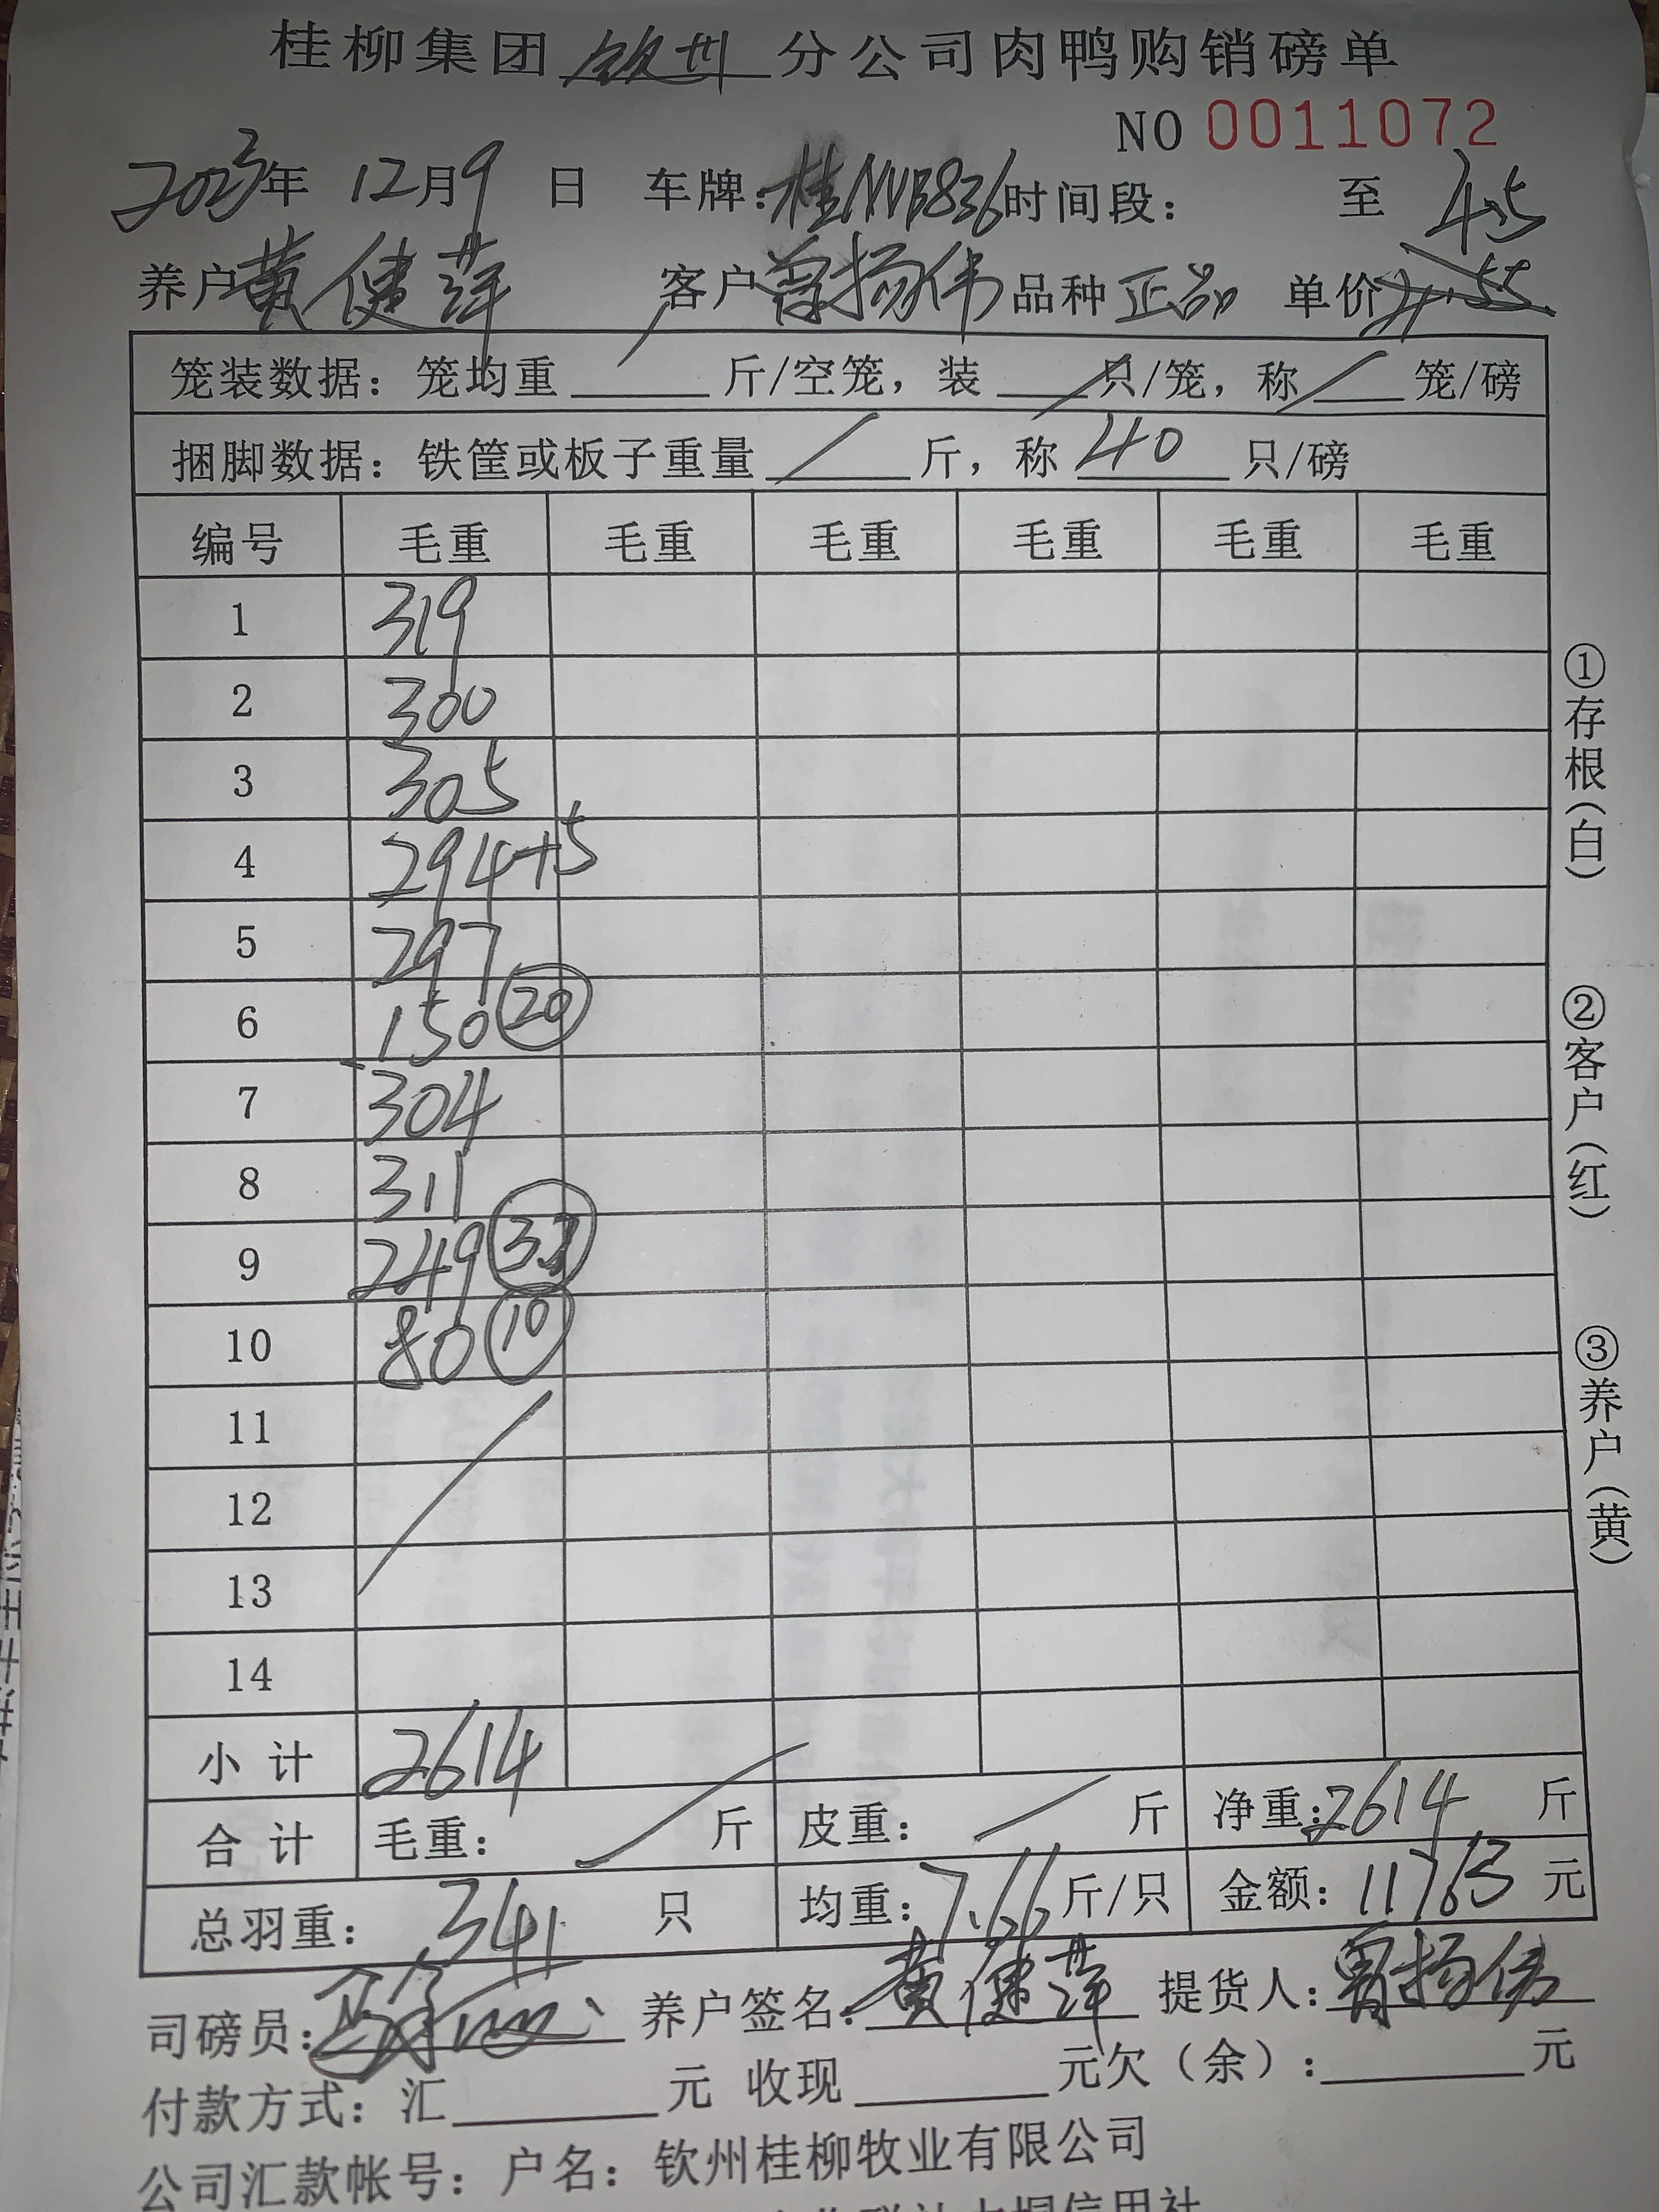 桂柳集团 钦州 分公司肉鸭购销磅单
NO 0011072
2023年 12月9 日 车牌:桂NVB836时间段: 至
4.5
养户黄健萍 客户曾扬伟 品种 正品 单价
笼装数据: 笼均重 / 斤/空笼, 装 / 只/笼, 称 / 笼/磅
捆脚数据: 铁筐或板子重量 / 斤, 称 40 只/磅
编号 毛重 毛重 毛重 毛重 毛重 毛重
1 319
2 300
3 305
4 294+5
5 297
6 150 20
7 304
8 311
9 249
10 80 10
11
12
13
14
小计 2614
合计 毛重: / 斤 皮重: / 斤 净重:2614 斤
总羽重: 341 只 均重:7.66斤/只 金额: 11763 元
司磅员: 养户签名:黄健萍 提货人:曾扬伟
付款方式: 汇 元 收现 元欠(余): 元
公司汇款帐号: 户名: 钦州桂柳牧业有限公司
①存根(白)
②客户(红)
③养户(黄)